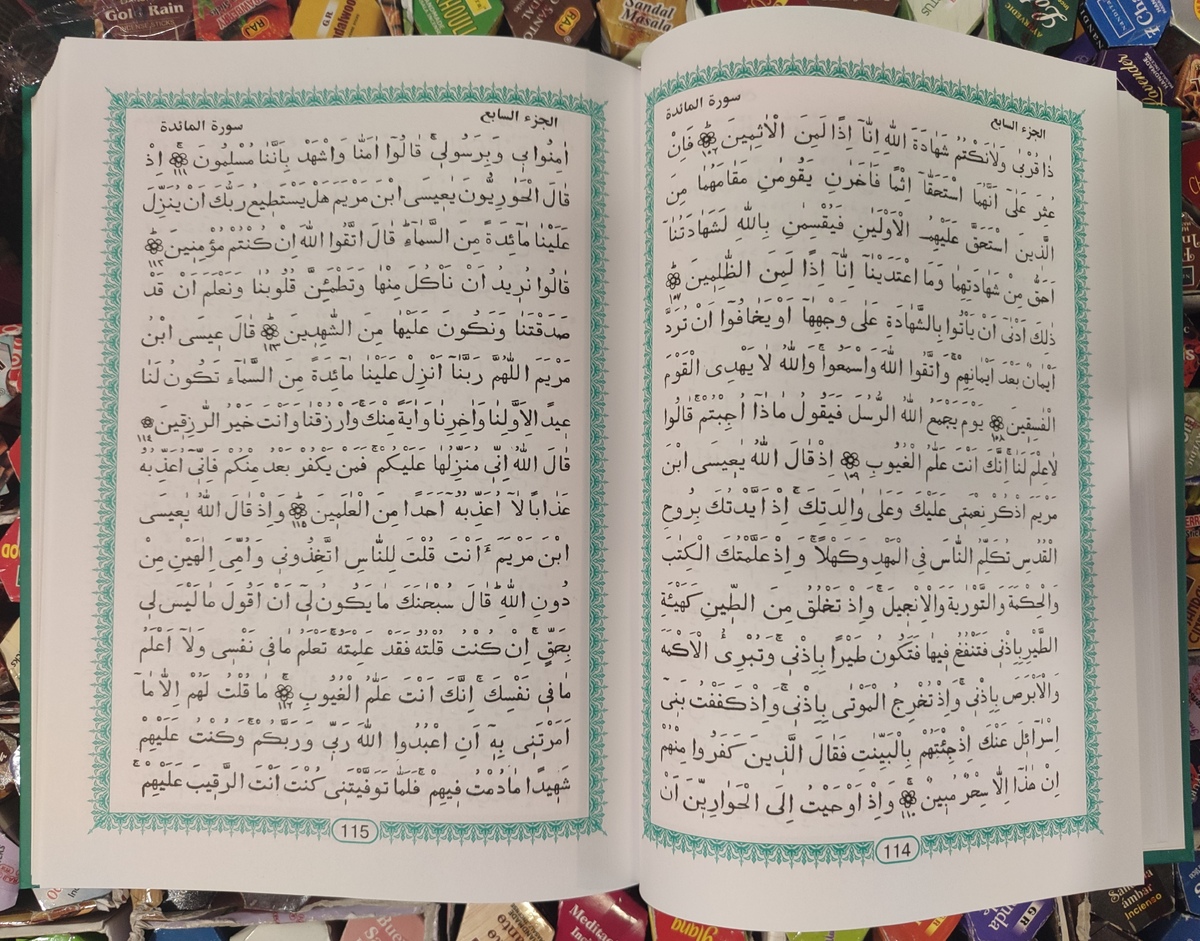 الجزء السابع
سورة المائدة
ذَا قُرْبٰى وَلَانَكْتُمُ شَهَادَةَ اللهِ اِنَّآ اِذًا لَمِنَ الْاٰثِمِينَ ١٠٦ فَاِنْ
عُثِرَ عَلٰٓى اَنَّهُمَا اسْتَحَقَّآ اِثْمًا فَاٰخَرٰنِ يَقُومٰنِ مَقَامَهُمَا مِنَ
الَّذِينَ اسْتَحَقَّ عَلَيْهِمُ الْاَوْلَيٰنِ فَيُقْسِمٰنِ بِاللهِ لَشَهَادَتُنَآ
اَحَقُّ مِنْ شَهَادَتِهِمَا وَمَا اعْتَدَيْنَآ اِنَّآ اِذًا لَمِنَ الظّٰلِمِينَ ١٠٧
ذٰلِكَ اَدْنٰٓى اَنْ يَأْتُوا بِالشَّهَادَةِ عَلٰى وَجْهِهَآ اَوْيَخَافُوٓا اَنْ تُرَدَّ
اَيْمَانٌ بَعْدَ اَيْمَانِهِمْ وَاتَّقُوا اللهَ وَاسْمَعُوا وَاللهُ لَا يَهْدِى الْقَوْمَ
الْفٰسِقِينَ ١٠٨ يَوْمَ يَجْمَعُ اللهُ الرُّسُلَ فَيَقُولُ مَاذَآ اُجِبْتُمْ قَالُوا
لَاعِلْمَ لَنَا اِنَّكَ اَنْتَ عَلَّامُ الْغُيُوبِ ١٠٩ اِذْقَالَ اللهُ يٰعِيسَى ابْنَ
مَرْيَمَ اذْكُرْ نِعْمَتِى عَلَيْكَ وَعَلٰى وَالِدَتِكَ اِذْ اَيَّدْتُكَ بِرُوحِ
الْقُدُسِ تُكَلِّمُ النَّاسَ فِى الْمَهْدِ وَكَهْلًا وَاِذْ عَلَّمْتُكَ الْكِتٰبَ
وَالْحِكْمَةَ وَالتَّوْرٰيةَ وَالْاِنْجِيلَ وَاِذْ تَخْلُقُ مِنَ الطِّينِ كَهَيْئَةِ
الطَّيْرِبِاِذْنِى فَتَنْفُخُ فِيهَا فَتَكُونُ طَيْرًا بِاِذْنِى وَتُبْرِئُ الْاَكْمَهَ
وَالْاَبْرَصَ بِاِذْنِى وَاِذْ تُخْرِجُ الْمَوْتٰى بِاِذْنِى وَاِذْ كَفَفْتُ بَنِىٓ
اِسْرَآئِلَ عَنْكَ اِذْجِئْتَهُمْ بِالْبَيِّنٰتِ فَقَالَ الَّذِينَ كَفَرُوا مِنْهُمْ
اِنْ هٰذَآ اِلَّا سِحْرٌ مُبِينٌ ١١٠ وَاِذْ اَوْحَيْتُ اِلَى الْحَوَارِيّنَ اَنْ
114
الجزء السابع
سورة المائدة
اٰمِنُوابِى وَبِرَسُولِى قَالُوٓا اٰمَنَّا وَاشْهَدْ بِاَنَّنَا مُسْلِمُونَ ١١١ اِذْ
قَالَ الْحَوَارِيُّونَ يٰعِيسَى ابْنَ مَرْيَمَ هَلْ يَسْتَطِيعُ رَبُّكَ اَنْ يُنَزِّلَ
عَلَيْنَا مَآئِدَةً مِنَ السَّمَآءِ قَالَ اتَّقُوا اللهَ اِنْ كُنْتُمْ مُؤْمِنِينَ ١١٢
قَالُوا نُرِيدُ اَنْ نَأْكُلَ مِنْهَا وَتَطْمَئِنَّ قُلُوبُنَا وَنَعْلَمَ اَنْ قَدْ
صَدَقْتَنَا وَنَكُونَ عَلَيْهَا مِنَ الشّٰهِدِينَ ١١٣ قَالَ عِيسَى ابْنُ
مَرْيَمَ اللّٰهُمَّ رَبَّنَآ اَنْزِلْ عَلَيْنَا مَآئِدَةً مِنَ السَّمَآءِ تَكُونُ لَنَا
عِيدًا لِاَوَّلِنَا وَاٰخِرِنَا وَاٰيَةً مِنْكَ وَارْزُقْنَا وَاَنْتَ خَيْرُ الرّٰزِقِينَ ١١٤
قَالَ اللهُ اِنِّى مُنَزِّلُهَا عَلَيْكُمْ فَمَنْ يَكْفُرْ بَعْدُ مِنْكُمْ فَاِنِّىٓ اُعَذِّبُهُ
عَذَابًا لَآ اُعَذِّبُهُٓ اَحَدًا مِنَ الْعٰلَمِينَ ١١٥ وَاِذْ قَالَ اللهُ يٰعِيسَى
ابْنَ مَرْيَمَ ءَاَنْتَ قُلْتَ لِلنَّاسِ اتَّخِذُونِى وَاُمِّىَ اِلٰهَيْنِ مِنْ
دُونِ اللهِ قَالَ سُبْحٰنَكَ مَا يَكُونُ لِىٓ اَنْ اَقُولَ مَا لَيْسَ لِى
بِحَقٍّ اِنْ كُنْتُ قُلْتُهُ فَقَدْ عَلِمْتَهُ تَعْلَمُ مَا فِى نَفْسِى وَلَآ اَعْلَمُ
مَا فِى نَفْسِكَ اِنَّكَ اَنْتَ عَلَّامُ الْغُيُوبِ ١١٦ مَا قُلْتُ لَهُمْ اِلَّا مَآ
اَمَرْتَنِى بِهِٓ اَنِ اعْبُدُوا اللهَ رَبِّى وَرَبَّكُمْ وَكُنْتُ عَلَيْهِمْ
شَهِيدًا مَا دُمْتُ فِيهِمْ فَلَمَّا تَوَفَّيْتَنِى كُنْتَ اَنْتَ الرَّقِيبَ عَلَيْهِمْ
115
Gold Rain
Sandal
Masala
RAJ
Lavender
Incienso